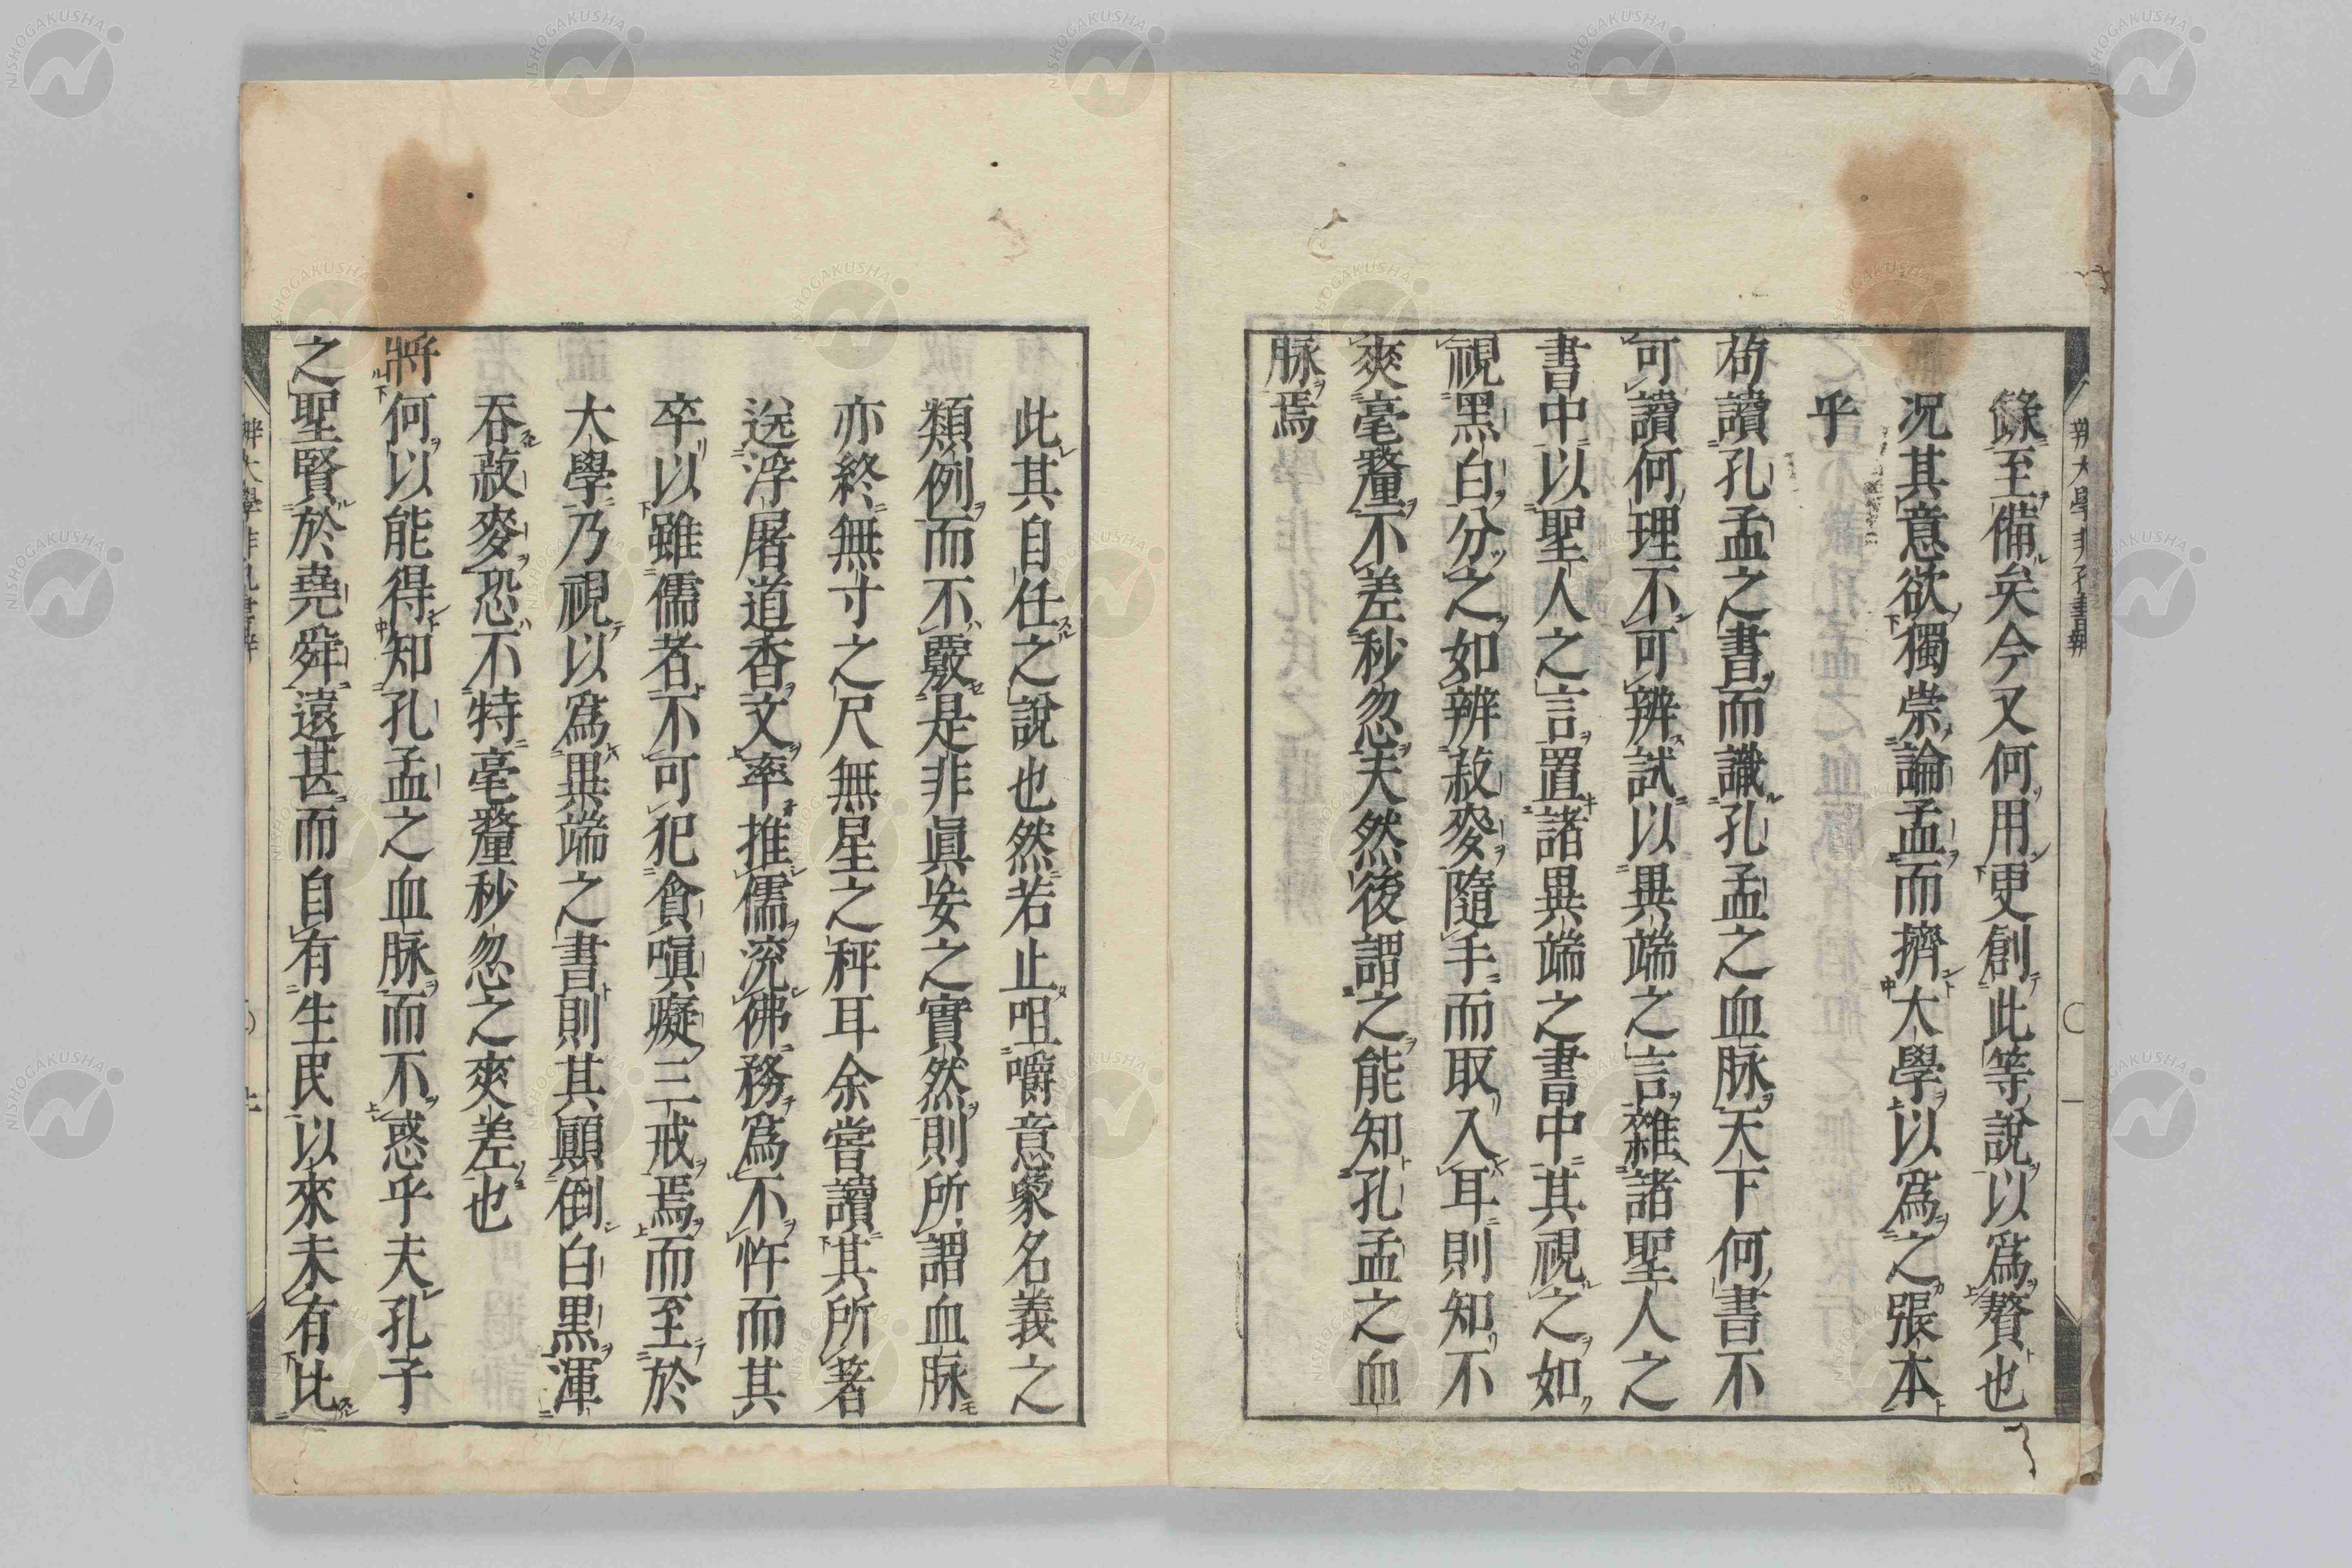 錄至備矣今又何用更創此等說以爲贅也
况其意欲獨崇論孟而擠大學以爲之張本
乎
苟讀孔孟之書而讖孔孟之血脉天下何書不
可讀何理不可辨試以異端之言雜諸聖人之
書中以聖人之言置諸異端之書中其視之如
視黑白分之如辨菽麥隨手而取入耳則知不
爽毫釐不差秒忽夫然後謂之能知孔孟之血
脉焉
此其自任之說也然若止咀嚼意蒙名義之
類例而不覈是非眞妄之實然則所謂血脉
亦終無寸之尺無星之秤耳余嘗讀其所著
送浮屠道香文率推儒流佛務爲不忤而其
卒以雖儒者不可犯貪嗔癡三戒焉而至於
大學乃視以爲異端之書則其顚倒白黒渾
吞菽麥恐不特毫釐秒忽之爽差也
將何以能得知孔孟之血脉而不惑乎夫孔子
之聖賢於堯舜遠甚而自有生民以來未有比
辨大學非孔書辨
NISHOGAKUSHA